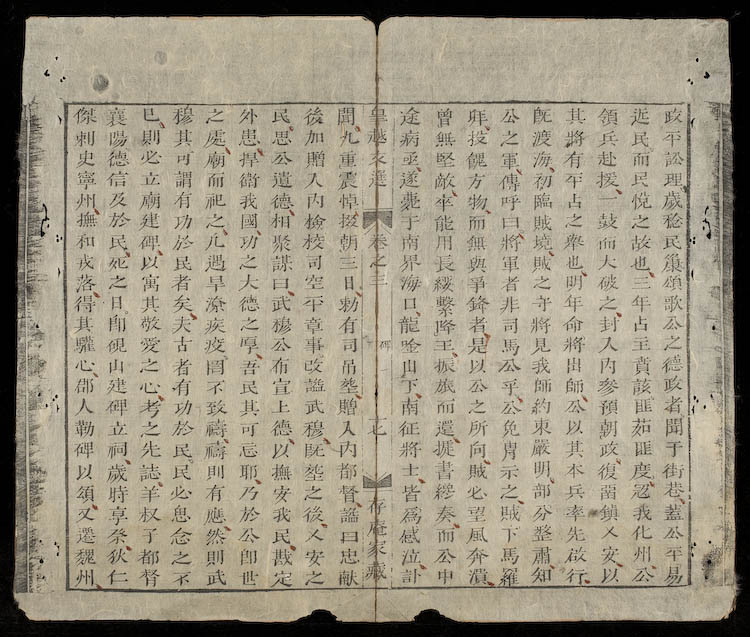 政平訟理歲稔民巢頌歌公之德政者聞于街巷蓋公平易
近民而民悅之故也三年占主賁該匪茹匪度寇我化州公
領兵赴援一鼓而大破之封入內參預朝政復南鎮乂安以
其將有平占之舉也明年命將出師公以其本兵率先啟行
旣渡海初臨賊境賊之守將見我師約束嚴明部分整肅知
公之軍傳呼曰將軍者非司馬公乎公免胄示之賊下馬羅
拜技餽方物而無與爭鋒者是以公之所向賊必望風奔潰
曾無堅敵卒能用長綬繫降王振旅而還捷書繆奏而公中
途病亟遂薨于南界海口龍唫山下南征將士皆爲感泣訃
皇越文選 卷之三 碑 存庵家藏
聞九重震悼掇朝三日勅有司弔塟贈入內都督謚曰忠献
後加贈入內檢校司空平章事改謚武穆旣塟之後乂安之
民思公遺德相聚謀曰武穆公布宣上德以撫安我民戡定
外患捍衛我國功之大德之厚吾民其可忘耶乃於公卽世
之處廟而祀之凢遇旱潦疾疫罔不致禱禱則有應然則武
穆其可謂有功於民者矣夫古者有功於民民必思念之不
已則必立廟建碑以寓其敬愛之心考之先誌羊叔子都督
襄陽德信及於民死之日卽峴山建碑立祠歲時享祭狄仁
傑刺史寧州撫和戎落得其驩心郡人勒碑以頌又遷魏州